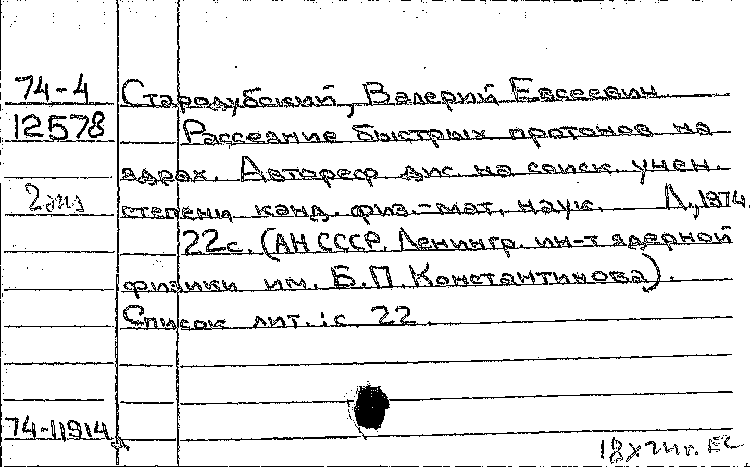 74-4 Стародубский, Валерий Евсеевич
12578 Рассеяние быстрых протонов на
ядрах. Автореф. дис. на соиск. учен.
2 экз степени канд. физ.-мат. наук. Л., 1974.
22с. (АН СССР. Ленингр. ин-т ядерной
физики им. Б.П. Константинова).
Список лит.: с. 22.
74-11914